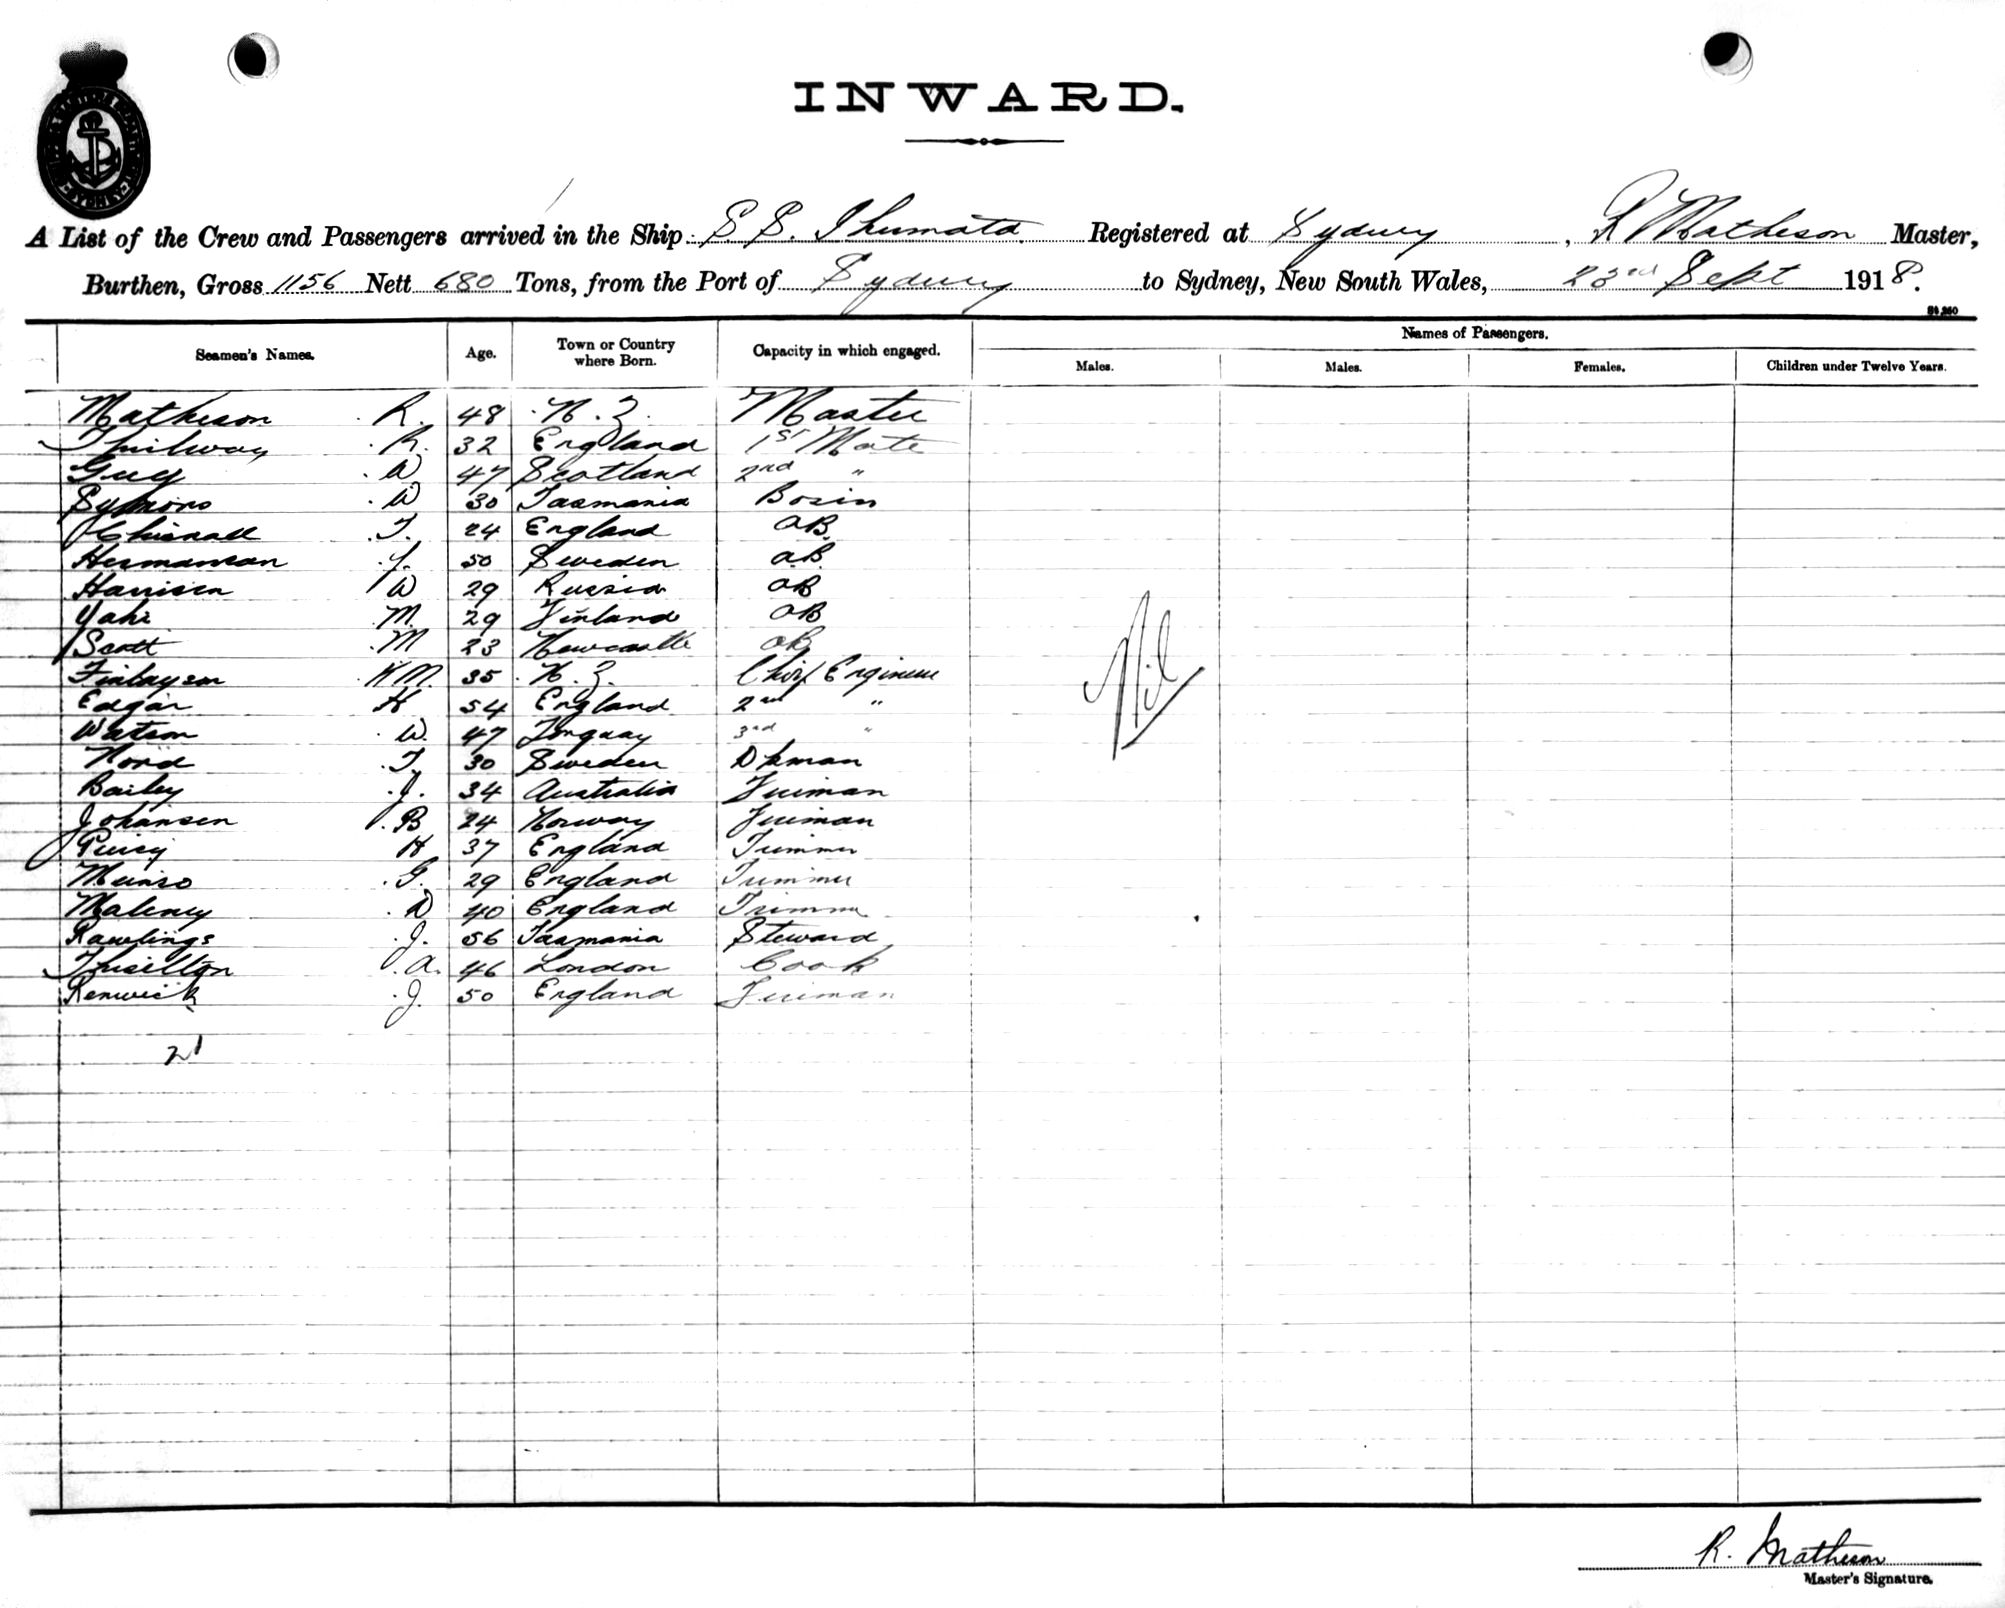 INWARD.
A List of the Crew and Passengers arrived in the Ship S S. Ihumata Registered at Sydney, R Matheson Master,
Burthen, Gross 1156 Nett 680 Tons, from the Port of Sydney to Sydney, New South Wales, 23rd Sept 1918.
Names of Passengers.
Seamen's Names. Age. Town or Country where Born. Capacity in which engaged. Males. Males. Females. Children under Twelve Years.
Matheson R. 48 N.Z. Master
R. 32 England 1st Mate
Guy W 47 Scotland 2nd "
Symons W 30 Tasmania Bosin
Chisnall T. 24 England AB.
Hermanson J. 50 Sweden a.B.
Harrison W 29 Russia AB
Yaki M. 29 Finland AB
Scott M 23 Newcastle AB
Finlayson H M. 35 N.Z. Chief Engineer
Edgar H 54 England 2nd "
Watson W. 47 Torquay 3rd "
Nord T 30 Sweden Dkman
Bailey J. 34 Australia Fireman
Johansen B 24 Norway Fireman
H 37 England Trimmer
Munro G. 29 England Trimmer
Maloney D 40 England Trimmer
Rawlings J. 56 Tasmania Steward
Thiselton A. 46 London Cook
Renwick J. 50 England Fireman
21
Nil
R. Matheson
Master's Signature.